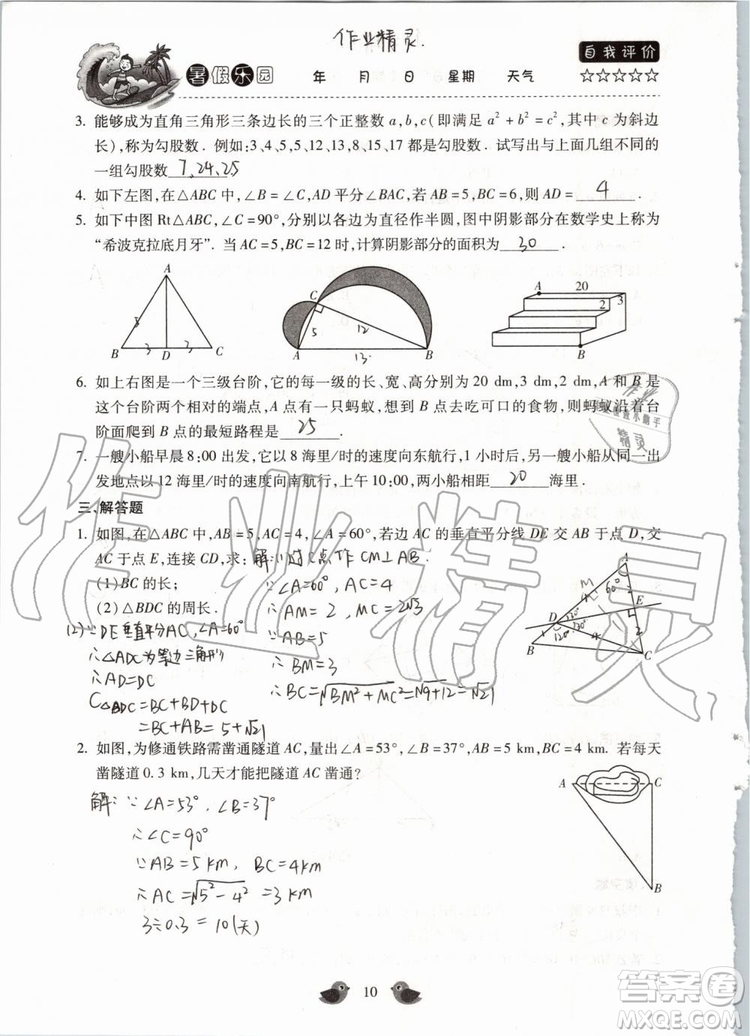 作业精灵.
自我评价
暑假乐园
年 月 日 星期 天气
☆☆☆☆☆
3. 能够成为直角三角形三条边长的三个正整数 a,b,c(即满足 a²+b²=c²,其中 c 为斜边
长),称为勾股数. 例如:3、4、5,5、12、13,8、15、17 都是勾股数. 试写出与上述不同的
一组勾股数 7,24,25
4. 如下左图,在△ABC 中,∠B=∠C,AD 平分∠BAC,若 AB=5,BC=6,则 AD= 4 .
5. 如下中图 Rt△ABC,∠C=90°,分别以各边为直径作半圆,图中阴影部分在数学史上称为
“希波克拉底月牙”. 当 AC=5,BC=12 时,计算阴影部分的面积为 30 .
A 5 B 3 D 3 C
C 5 12 A 13 B
A 20 2 3 B
6. 如上右图是一个三级台阶,它的每一级的长、宽、高分别为 20 dm,3 dm,2 dm,A 和 B 是
这个台阶两个相对的端点,A 点有一只蚂蚁,想到 B 点去吃可口的食物,则蚂蚁沿着台
阶面爬到 B 点的最短路程是 25 .
7. 一艘小船早晨 8:00 出发,它以 8 海里/时的速度向东航行,1 小时后,另一艘小船从同一出
发地点以 12 海里/时的速度向南航行,上午 10:00,两小船相距 20 海里.
三、解答题
1. 如图,在△ABC 中,∠A=60°,AB=5,AC=4,若边 AC 的垂直平分线 DE 交 AB 于点 D,交
AC 于点 E,连接 CD,求: 解:(1)过C点作CM⊥AB.
(1)BC 的长; ∵∠A=60°, AC=4
(2)△BDC 的周长. ∴AM=2, MC=2√3
(2)∵DE垂直平分AC,∠A=60° ∵AB=5
∴△ADC为等边三角形 ∴BM=3
∴AD=DC ∴BC=√BM²+MC²=√9+12=√21
C△BDC=BC+BD+DC
=BC+AB=5+√21
M 60° D E 120° B C
2. 如图,为修通铁路需凿通隧道 AC,量出∠A=53°,∠B=37°,AB=5 km,BC=4 km. 若每天
凿隧道 0.3 km,几天才能把隧道 AC 凿通?
解:∵∠A=53°, ∠B=37°
∴∠C=90°
∵AB=5km, BC=4km
∴AC=√5²-4²=3km
3÷0.3=10(天)
A C B
10
作业精灵
精灵
答案卷
MXQE.COM